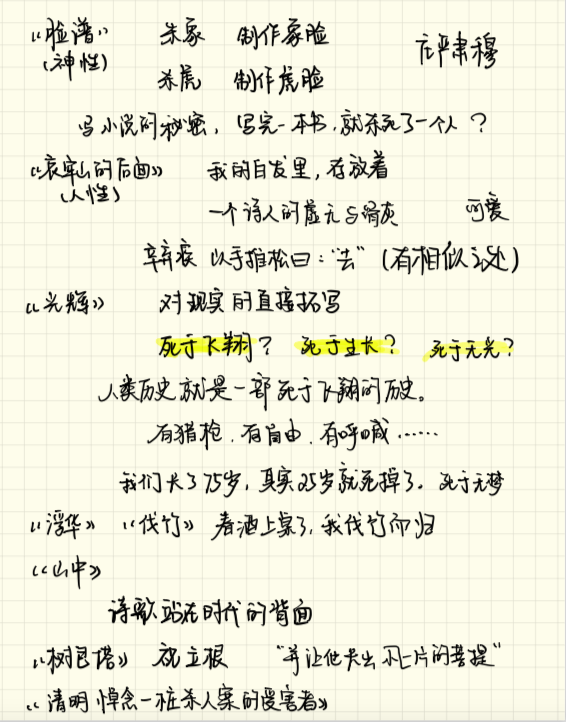 “脸谱” 朱象 制作象脸 庄严肃穆
(神性)
杀虎 制作虎脸
写小说的秘密，写完一本书，就杀死了一个人？
《哀牢山的后面》 我的白发里，存放着
(人性)
一个诗人的虚无与骨灰 可爱
辛弃疾 以手推松曰：“去”（有相似之处）
《光辉》 对现实的直接拓写
死于飞翔？ 死于生长？ 死于无光？
人类历史就是一部死于飞翔的历史。
有猎枪，有自由，有呼喊……
我们长了75岁，其实25岁就死掉了。死于无梦
《浮华》 《伐竹》 春酒上桌了，我伐竹而归
《山中》
诗歌站在时代的背面
《树包塔》 祝立根 “并让他夹出 片的菩提”
《清明 悼念一桩杀人案的受害者》